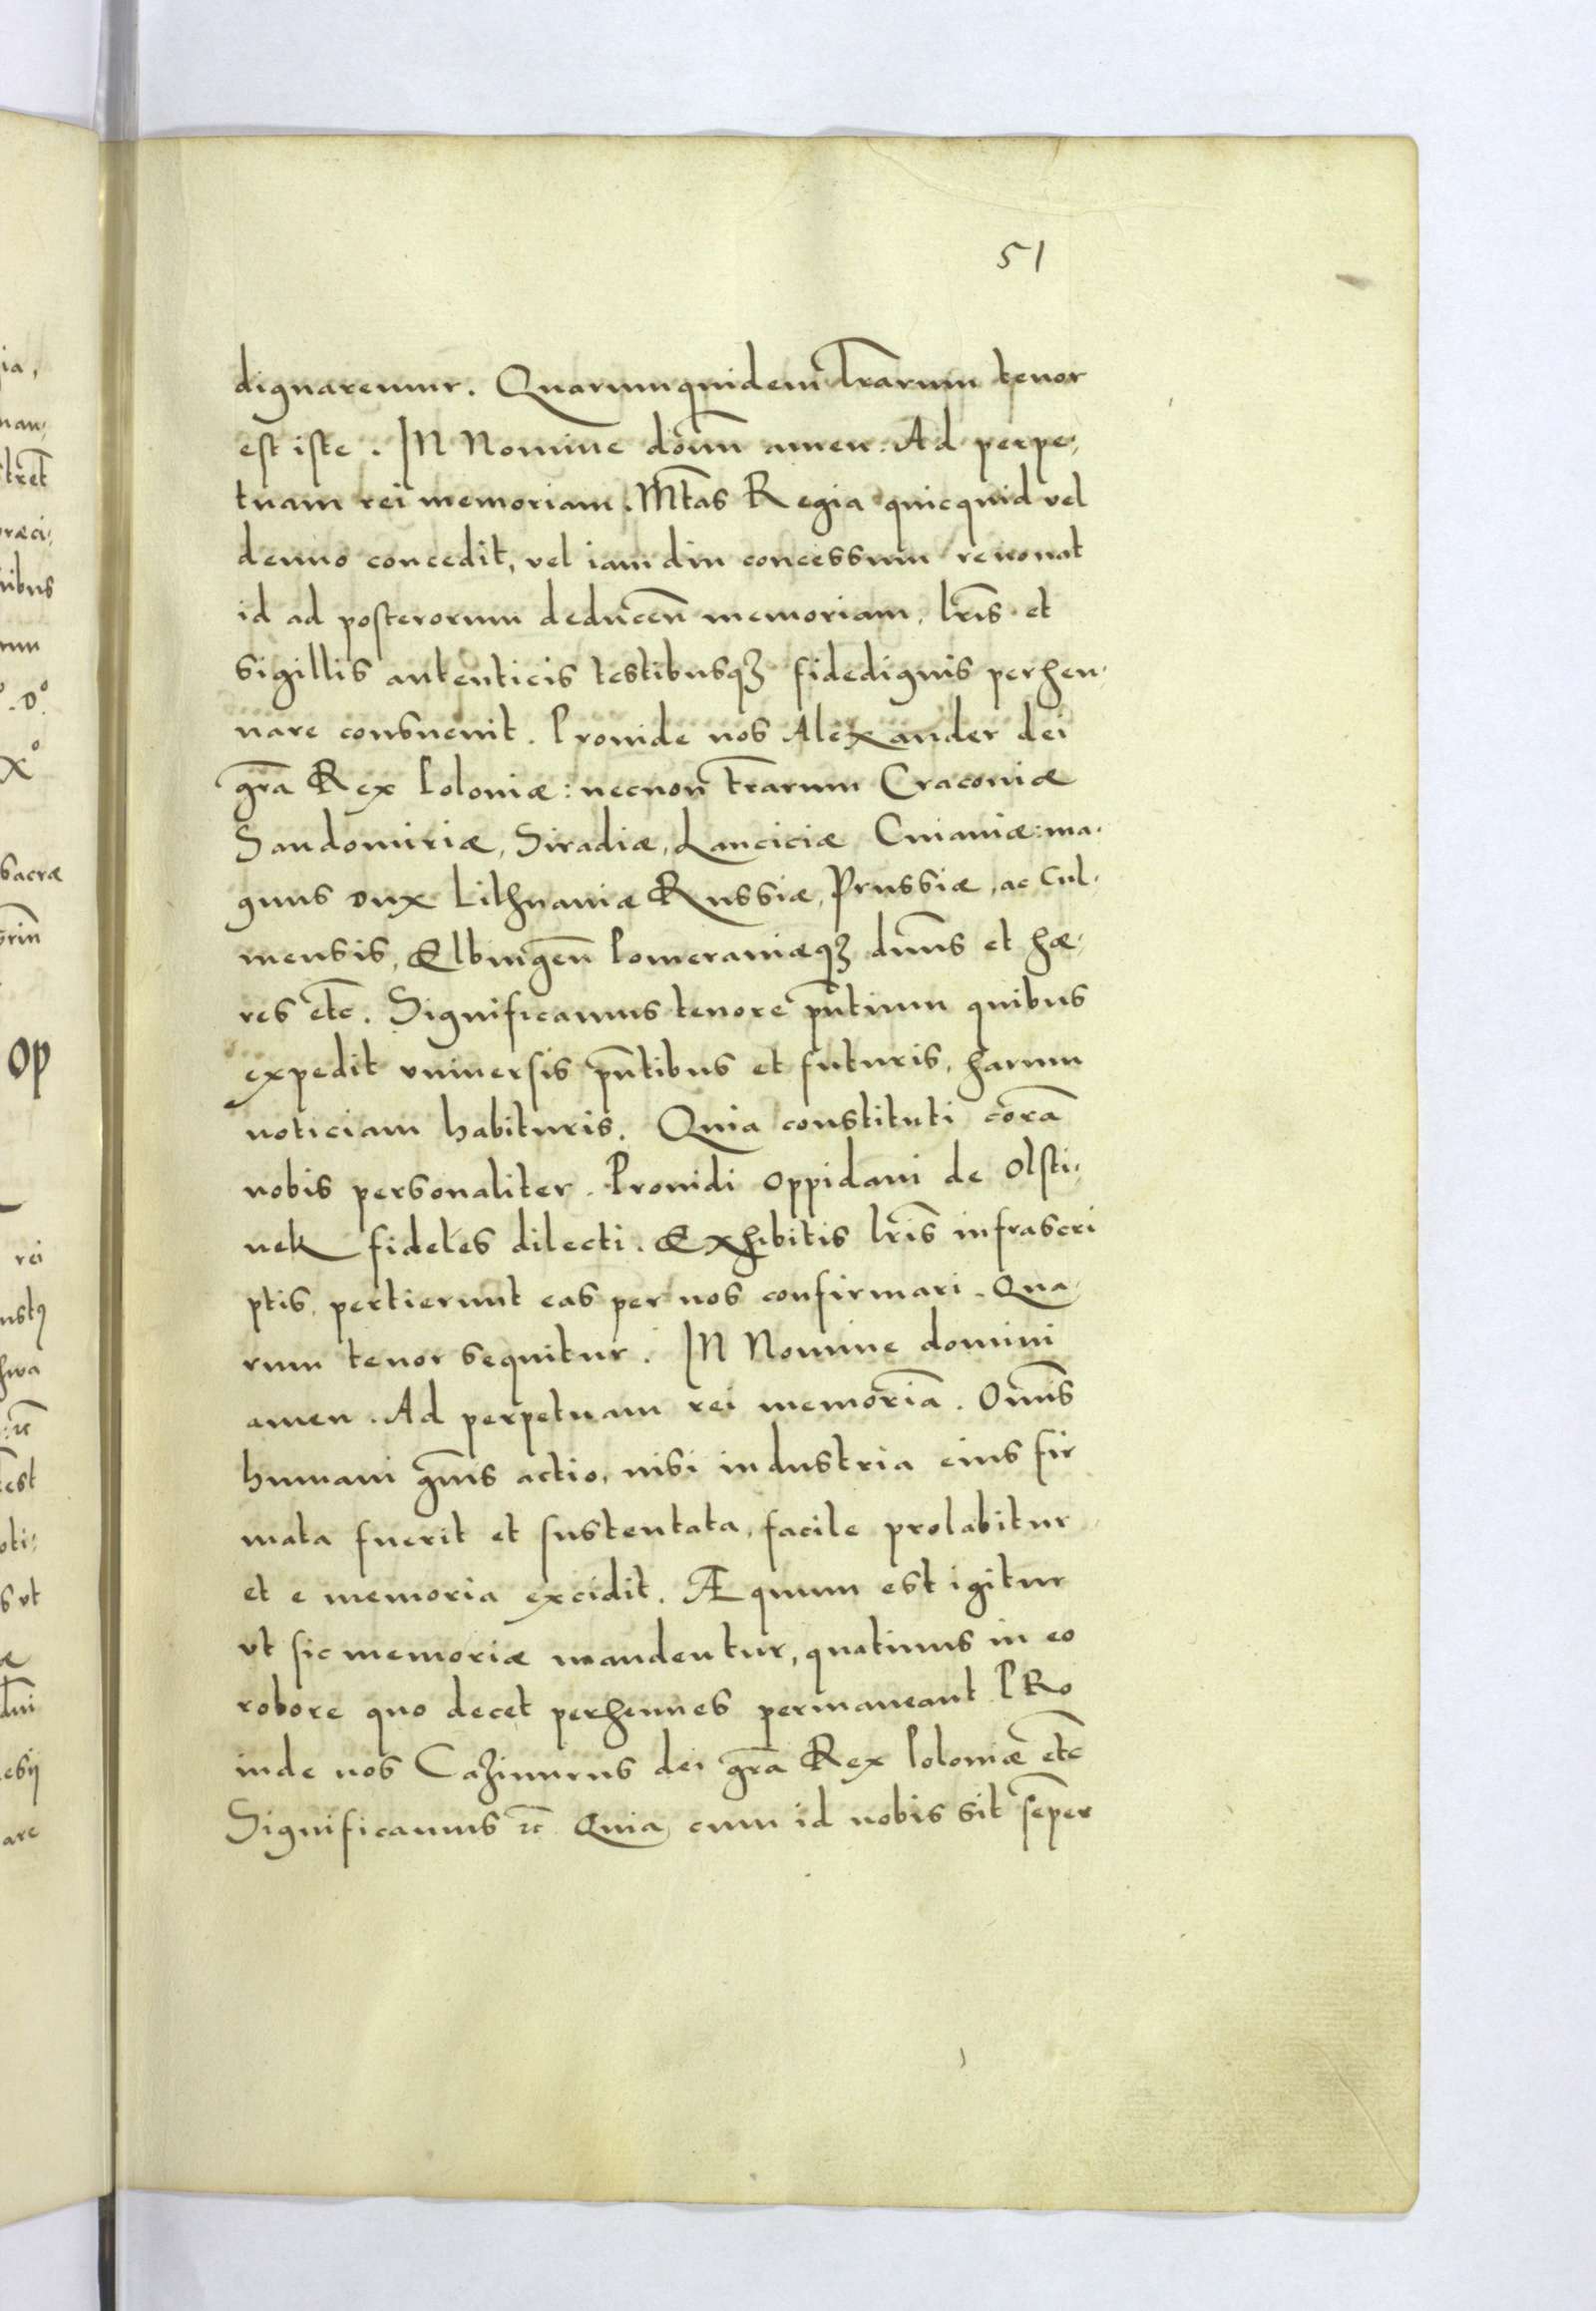 51
dignaremur. Quarumquidem lr̃arum tenor
est iste. IN Nomine domĩ amen. Ad perpe-
tuam rei memoriam. Mt̃as Regia quicquid vel
denuo concedit, vel iam diu concessum renouat
id ad posterorum deducen̄ memoriam, lr̃is et
sigillis autenticis testibusqȝ fidedignis perhen-
nare consueuit. Prouide nos Alexander dei
gr̃a Rex Poloniæ: necnon tr̃arum Cracouiæ
Sandomiriæ, Siradiæ, Lanciciæ Cuiauiæ: ma-
gnus Dux Lithuaniæ Russiæ, Prussiæ, ac Cul-
mensis, Elbingen̄ Pomeraniæqȝ dn̄us et hæ-
res etc̄. Significamus tenore pn̄tium quibus
expedit vniuersis pn̄tibus et futuris, harum
noticiam habituris. Quia constituti corā
nobis personaliter. Prouidi oppidani de Olsti-
nek fideles dilecti. Exhibitis lr̃is infrascri
ptis, pertierunt eas per nos confirmari. Qua-
rum tenor sequitur. IN Nomine domini
amen. Ad perpetuam rei memoriā. Omīs
humani gn̄is actio, nisi industria eius fir
mata fuerit et sustentata, facile prolabitur
et e memoria excidit. Æquum est igitur
vt sic memoriæ mandentur, quatinus in eo
robore quo decet perhennes permaneant PRo
inde nos Cazimirus dei gr̃a Rex Poloniæ etc̄
Significamus ⁊c̄ Quia cum id nobis sit sēper